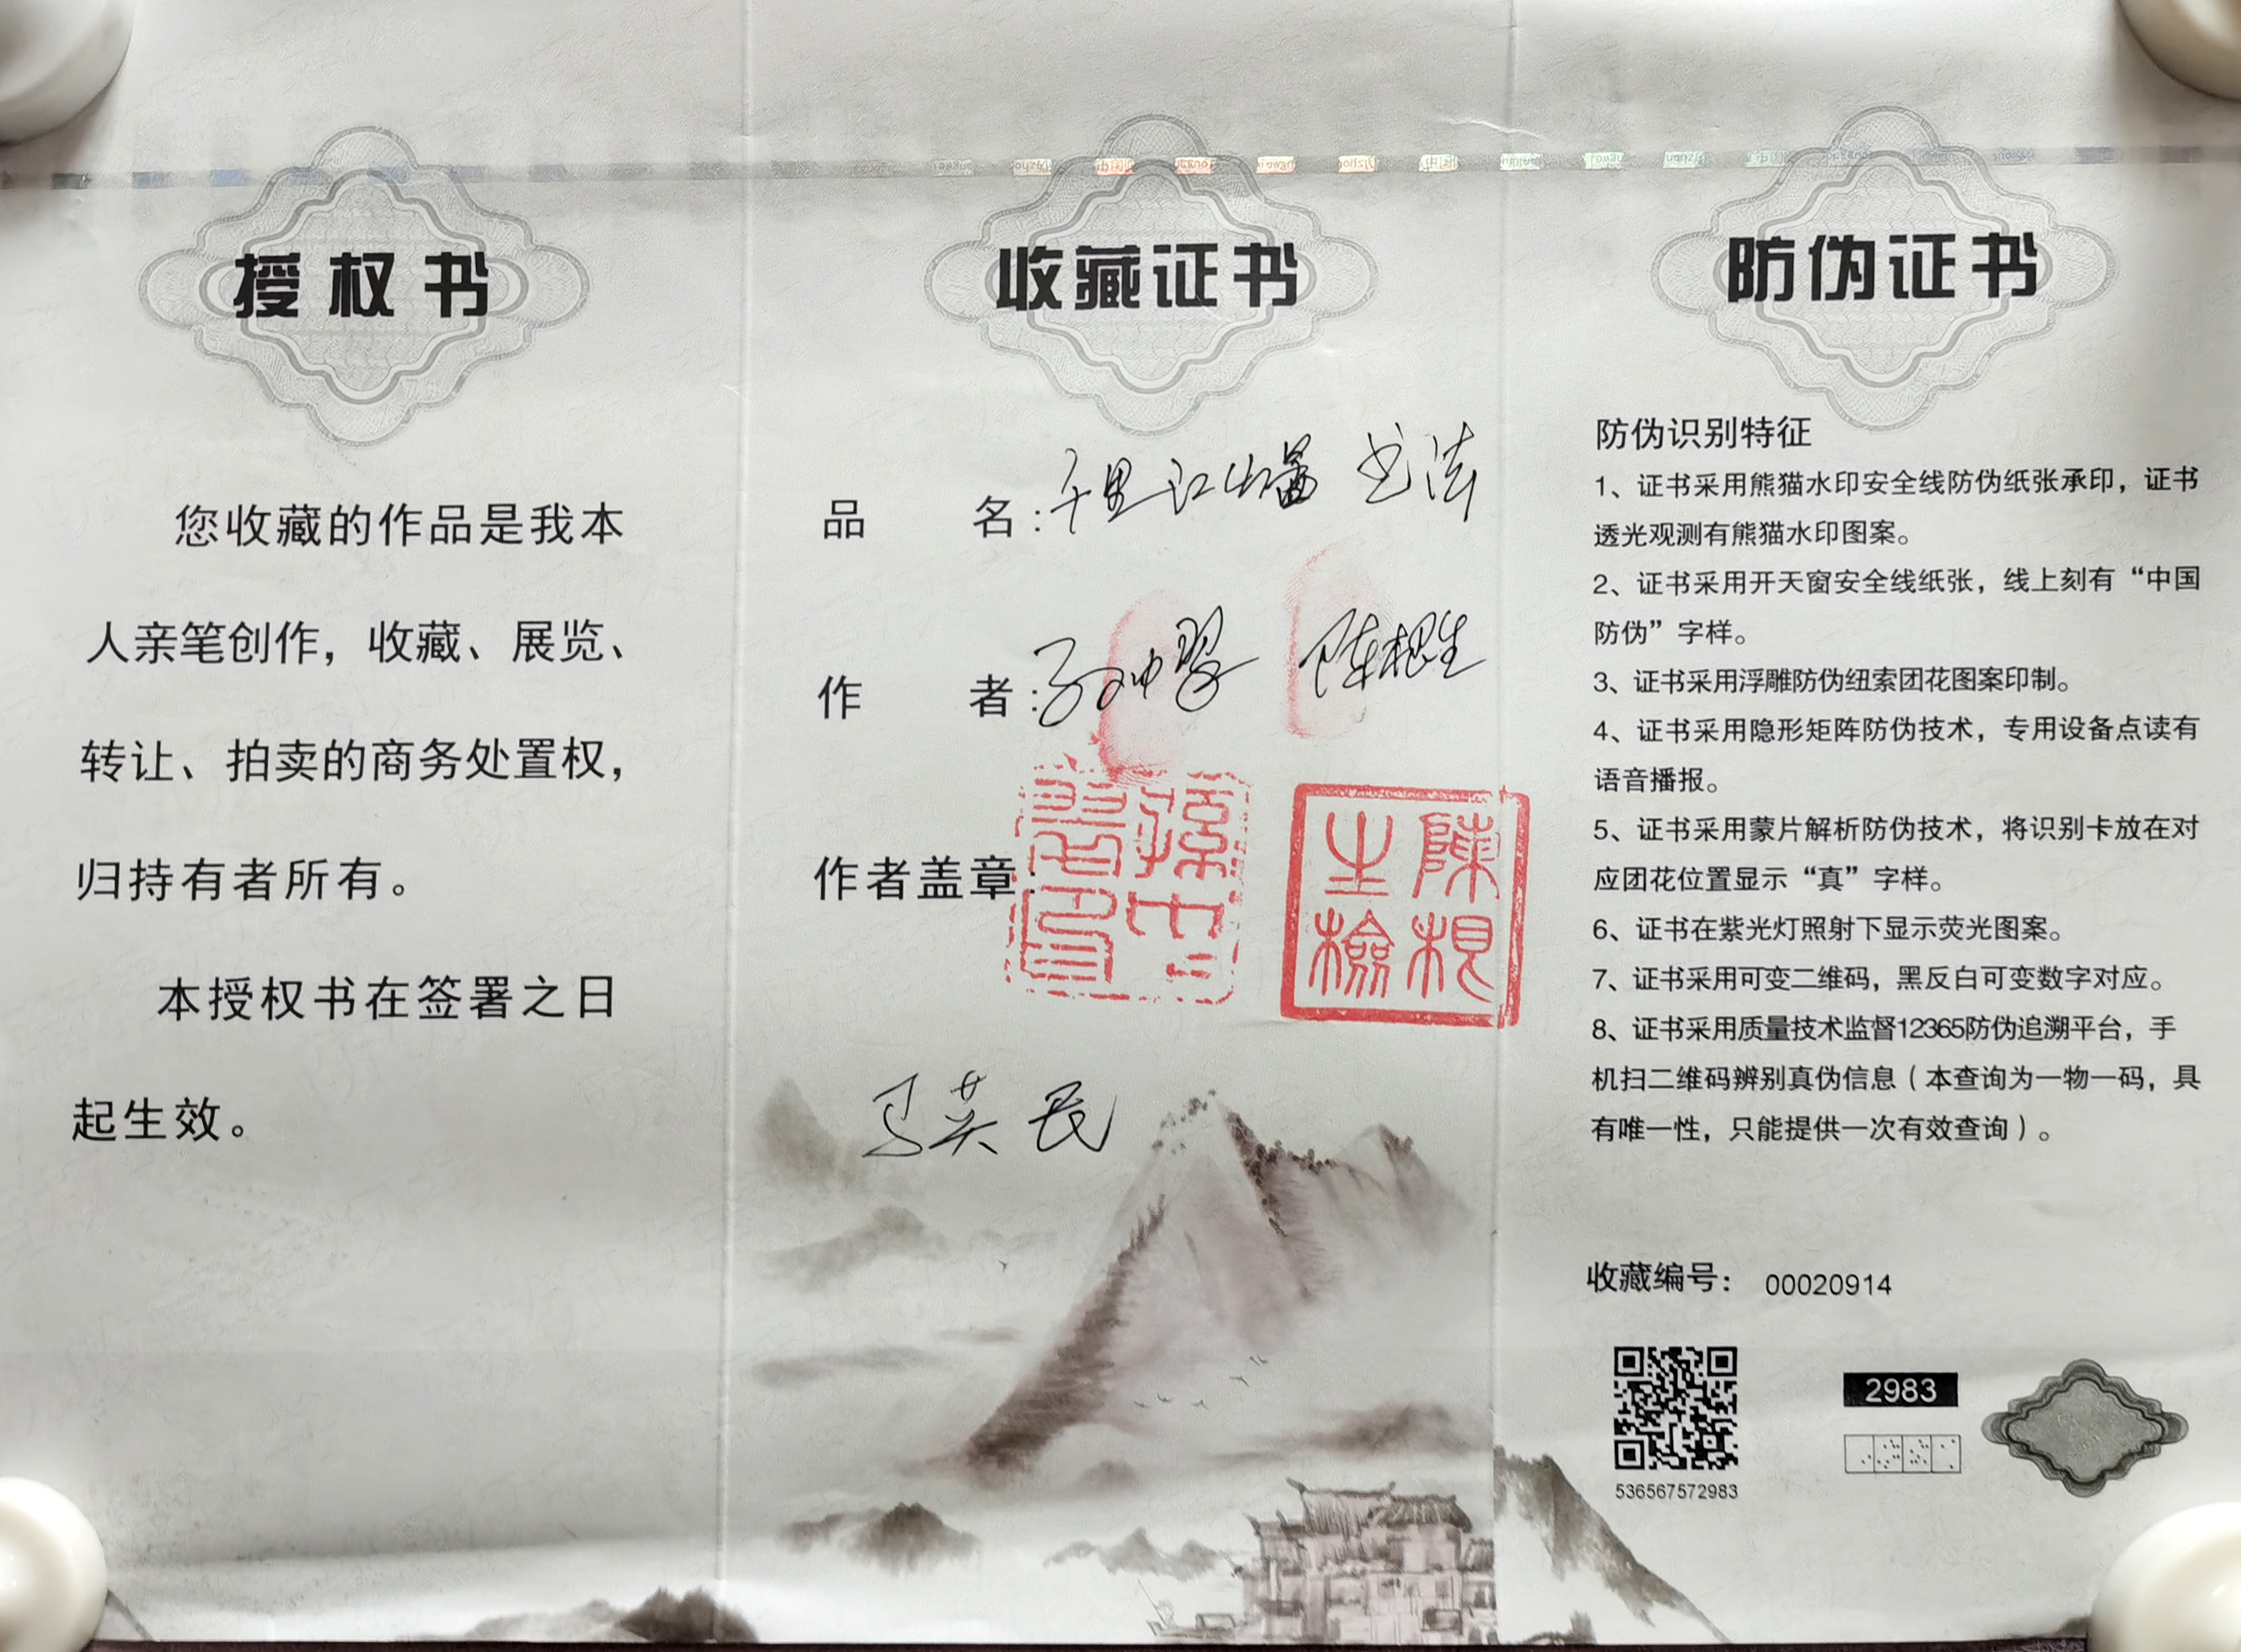 授权书
您收藏的作品是我本
人亲笔创作，收藏、展览、
转让、拍卖的商务处置权，
归持有者所有。
本授权书在签署之日
起生效。
收藏证书
品名：千里江山图 书法
作者：孙中翌 陈根生
作者盖章：
孫中
印
陳根
生檢
马英民
防伪证书
防伪识别特征
1、证书采用熊猫水印安全线防伪纸张承印，证书
透光观测有熊猫水印图案。
2、证书采用开天窗安全线纸张，线上刻有“中国
防伪”字样。
3、证书采用浮雕防伪纽索团花图案印制。
4、证书采用隐形矩阵防伪技术，专用设备点读有
语音播报。
5、证书采用蒙片解析防伪技术，将识别卡放在对
应团花位置显示“真”字样。
6、证书在紫光灯照射下显示荧光图案。
7、证书采用可变二维码，黑反白可变数字对应。
8、证书采用质量技术监督12365防伪追溯平台，手
机扫二维码辨别真伪信息（本查询为一物一码，具
有唯一性，只能提供一次有效查询）。
收藏编号： 00020914
2983
536567572983